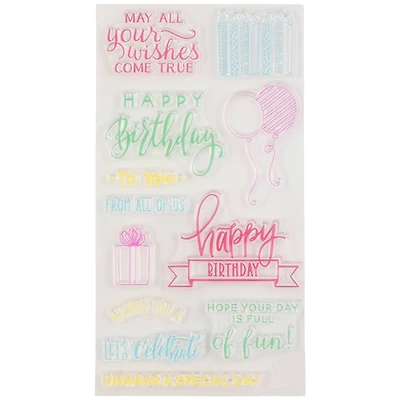 MAY ALL
your wishes
COME TRUE
HAPPY
Birthday
To You
FROM ALL OF US
happy
BIRTHDAY
HOPE YOUR DAY
IS FULL
of fun!
LET'S Celebrate
A SPECIAL DAY